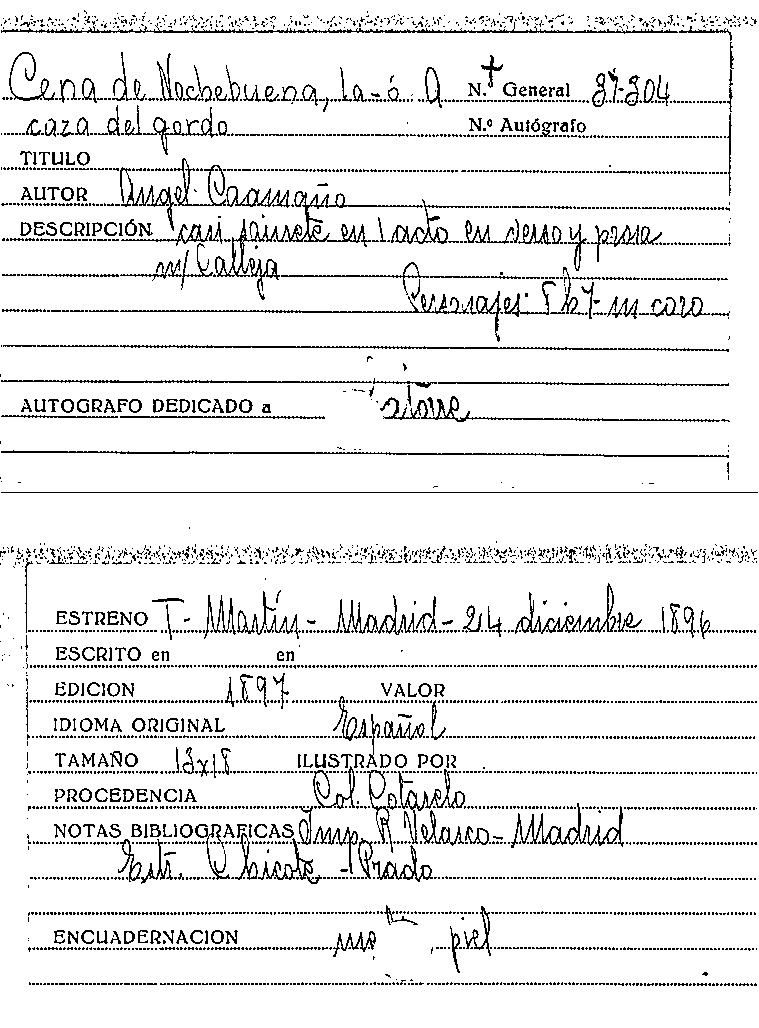 Cena de Nochebuena, la-ó A N.º General 37-304
caza del gordo N.º Autógrafo
TITULO
AUTOR Angel Caamaño
DESCRIPCIÓN casi sainete en 1 acto en verso y prosa
m/ Calleja
Personajes: 5 h 7 m coro
AUTOGRAFO DEDICADO a
ESTRENO T- Martín - Madrid - 24 diciembre 1896
ESCRITO en en
EDICION 1897 VALOR
IDIOMA ORIGINAL Español
TAMAÑO 13x18 ILUSTRADO POR
PROCEDENCIA Col. Cotarelo
NOTAS BIBLIOGRAFICAS Imp. R Velasco - Madrid
Estr. Chicote - Prado
ENCUADERNACION piel